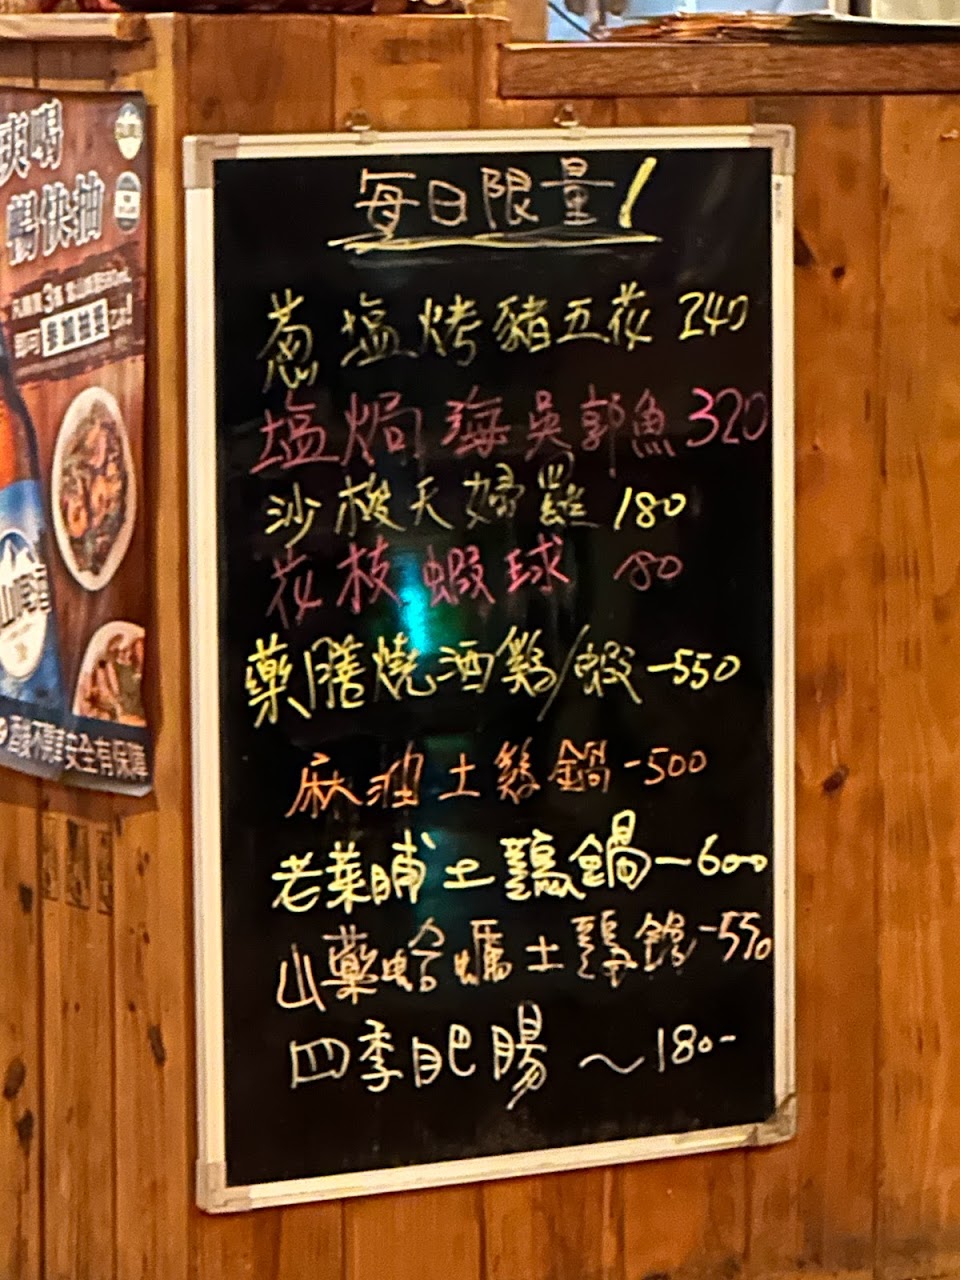 每日限量!
蔥塩烤豬五花 240
塩焗海吳郭魚 320
沙梭天婦羅 180
花枝蝦球 80
藥膳燒酒雞/蝦 -550
麻油土雞鍋 -500
老菜脯土雞鍋 - 600
山藥蛤蠣土雞鍋 -550
四季肥腸 ~ 180-
爽喝
暢快抽
即可
酒後不開車 安全有保障